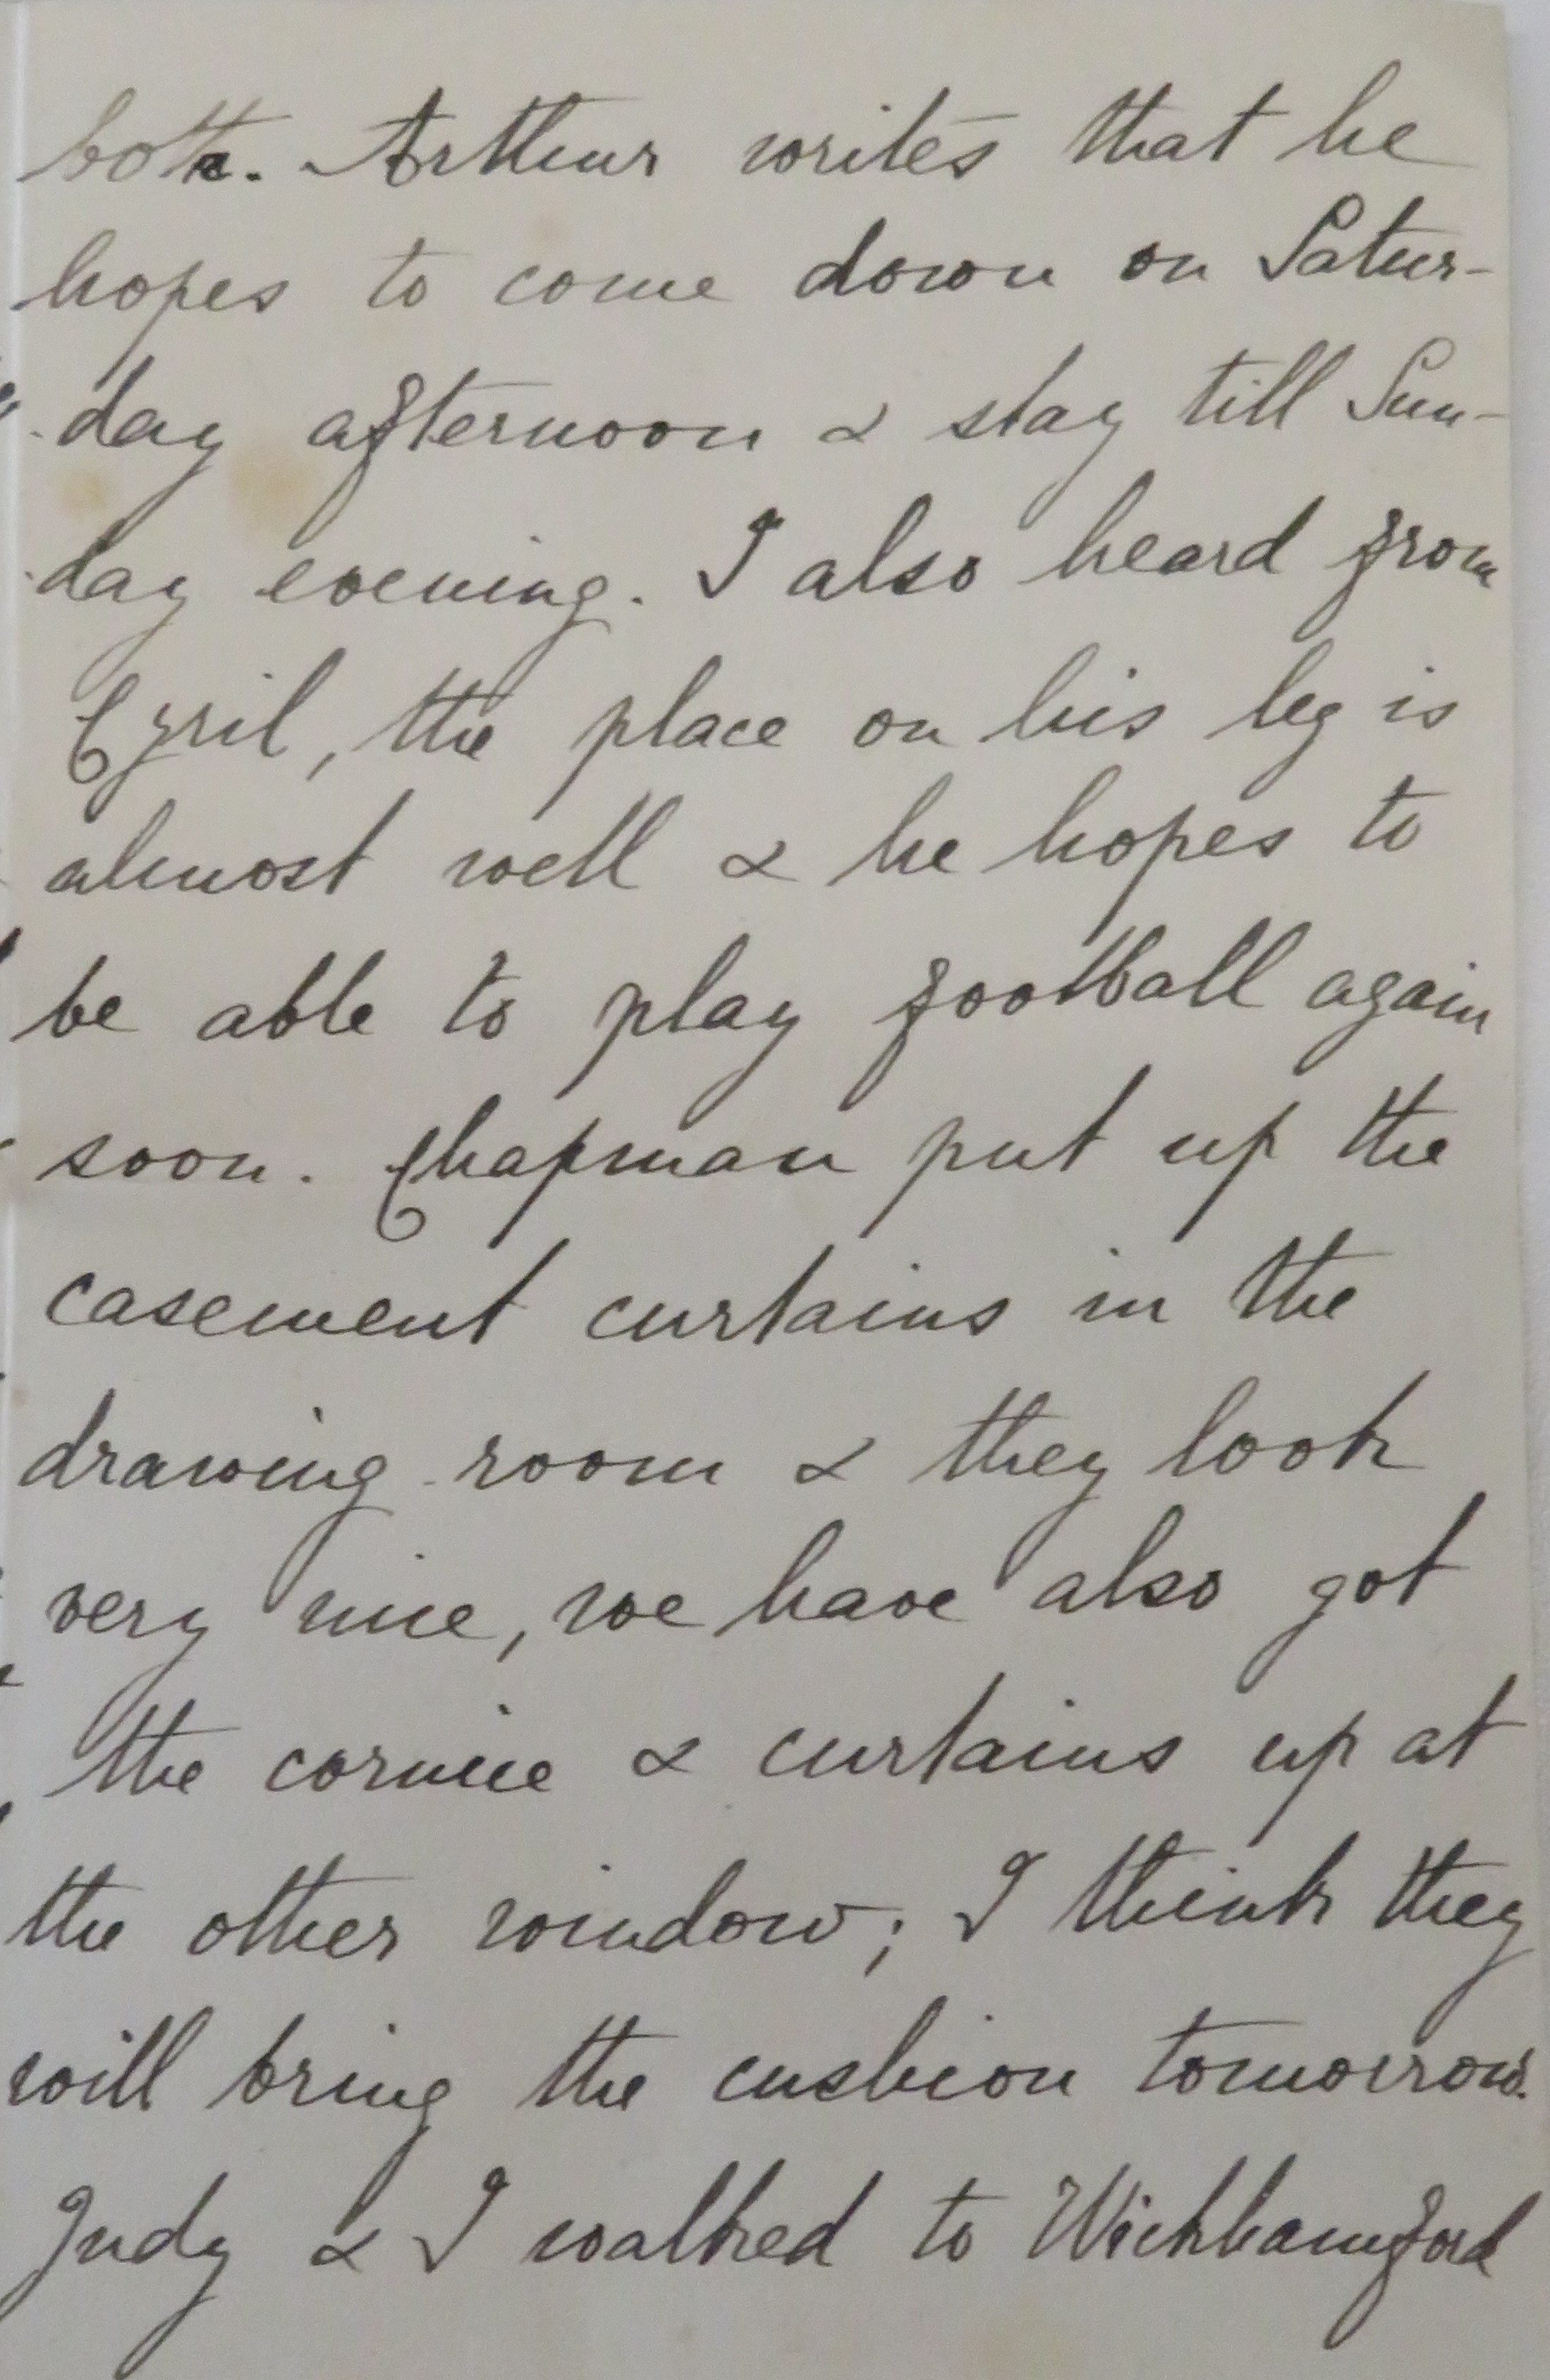 both. Arthur writes that he
hopes to come down on Satur-
day afternoon & stay till Sun-
day evening. I also heard from
Cyril, the place on his leg is
almost well & he hopes to
be able to play football again
soon. Chapman put up the
casement curtains in the
drawing room & they look
very nice, we have also got
the cornice & curtains up at
the other window; I think they
will bring the cushion tomorrow.
Judy & I walked to Wickhamford